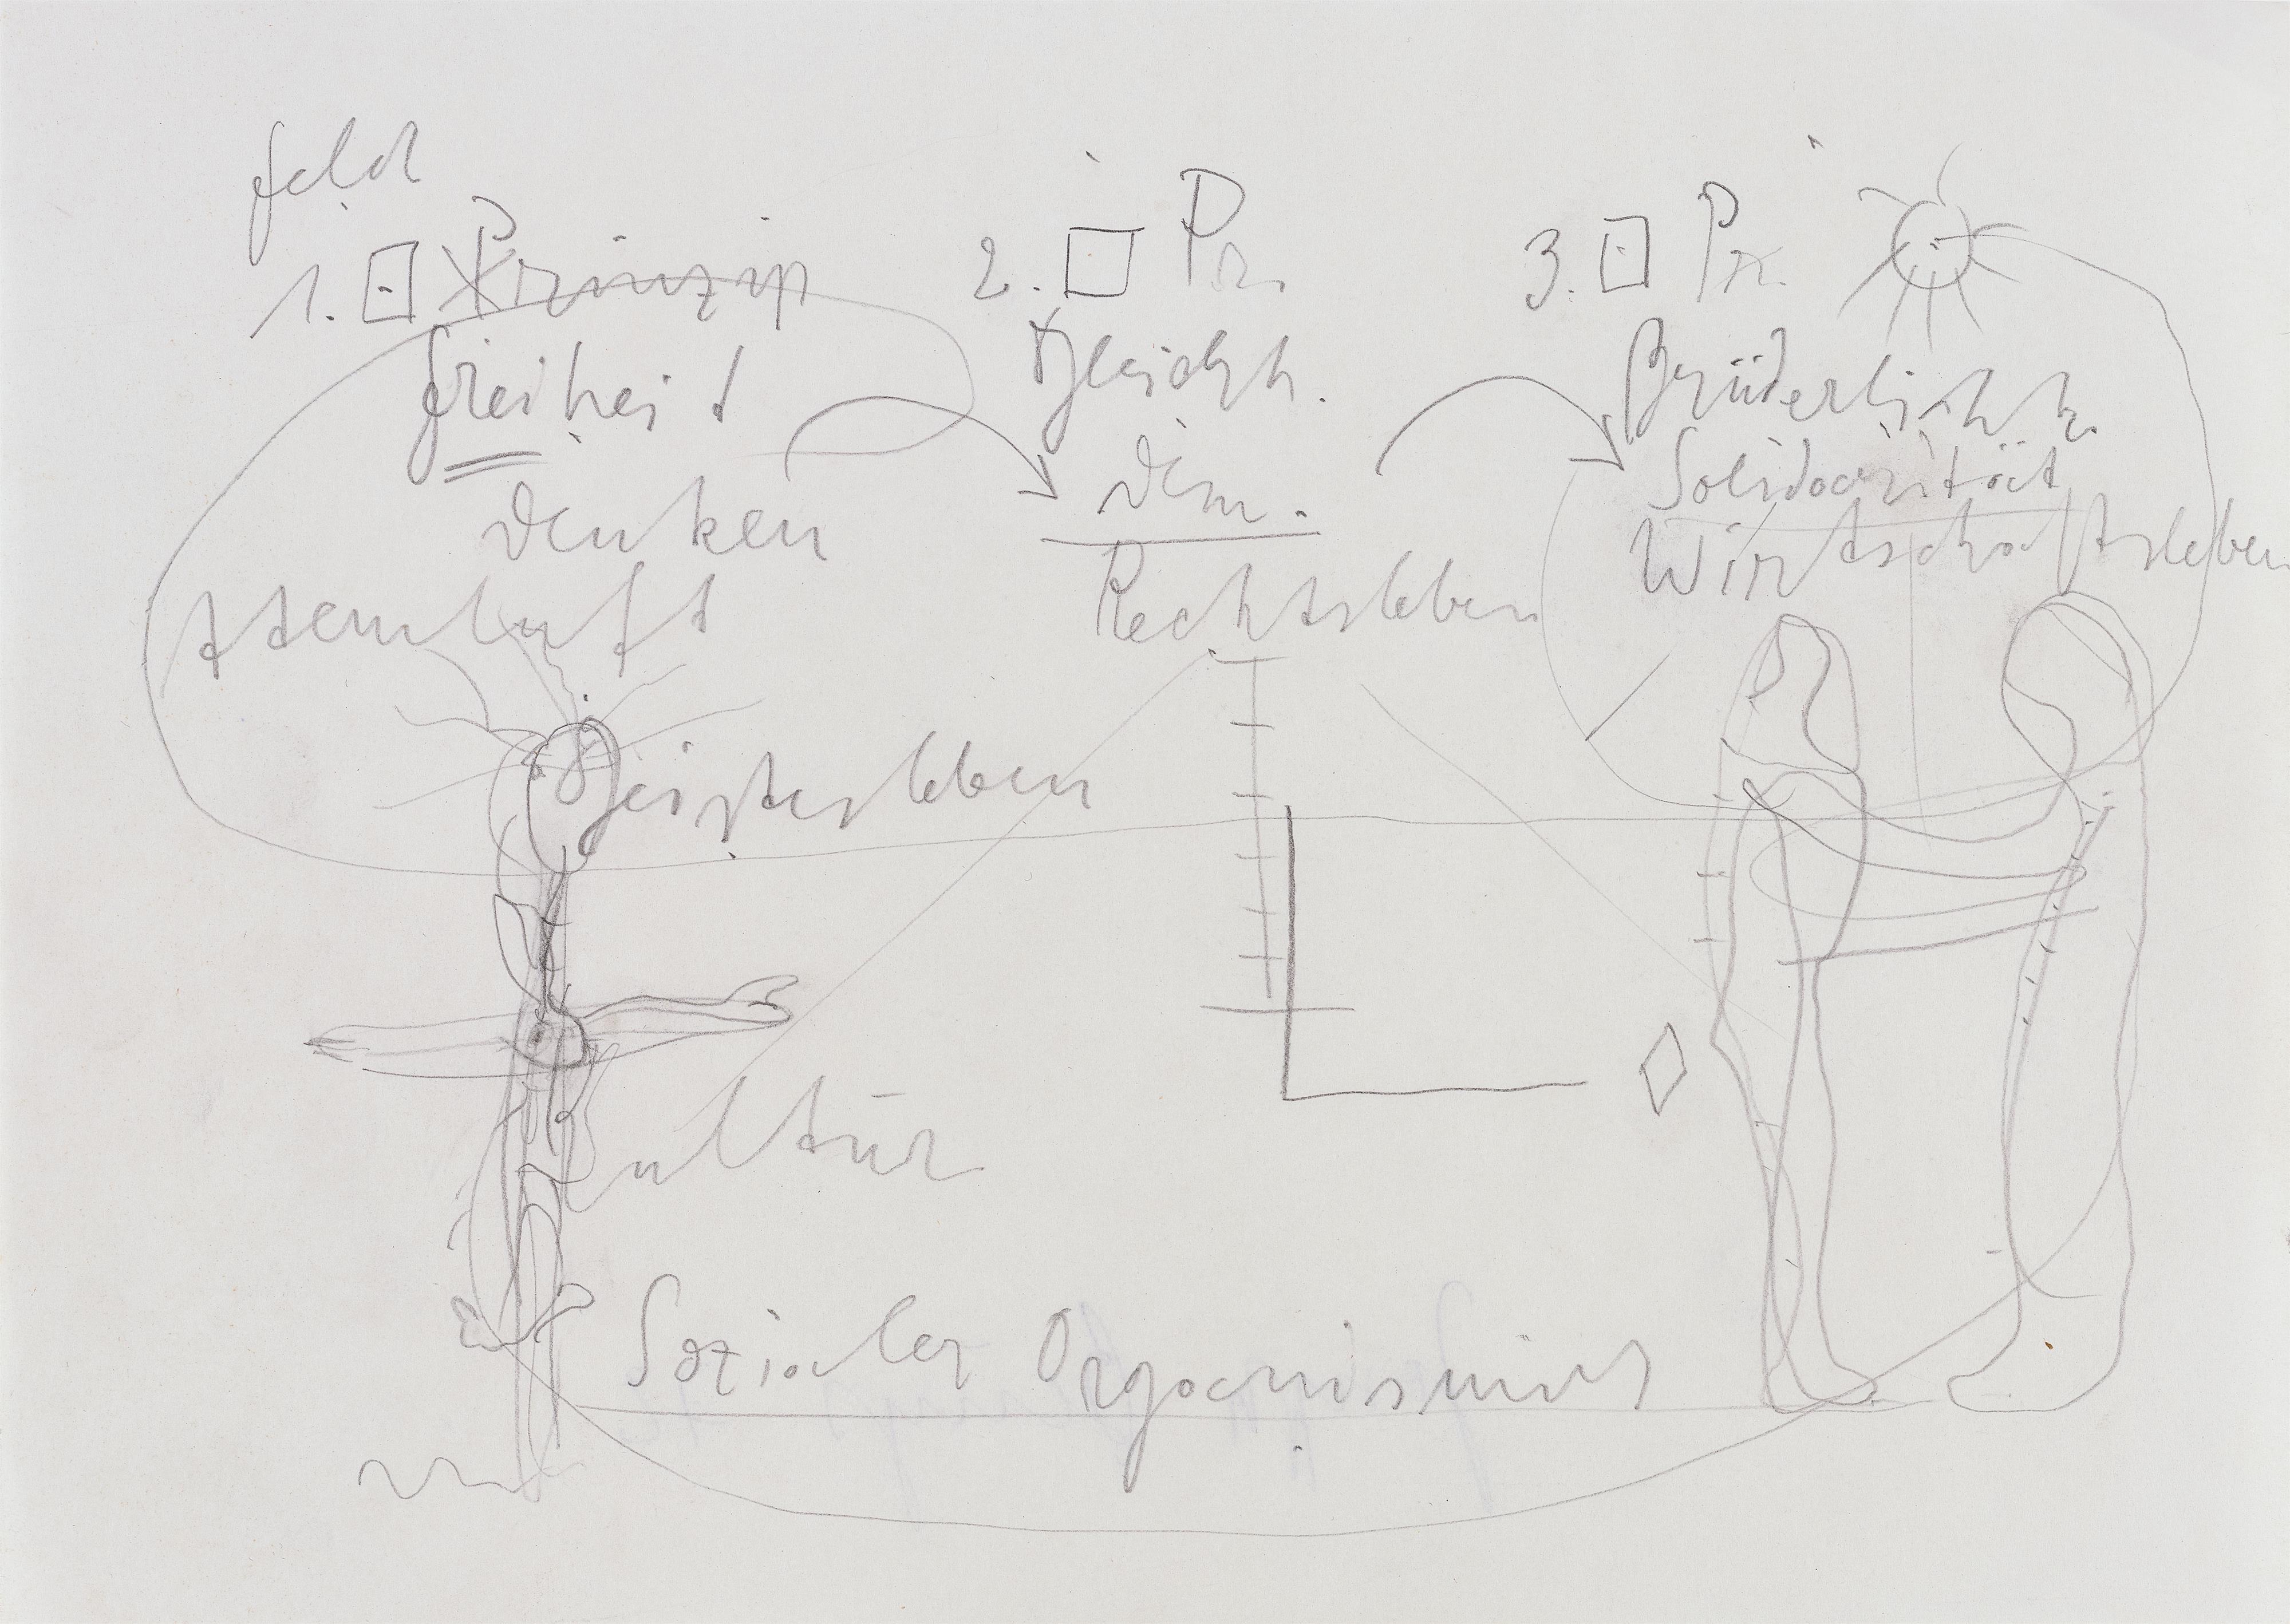 feld
1. Prinzip
freiheit
denken
Atemluft
Geistesleben
2. Pr.
Gleichh.
dem.
Rechtsleben
3. Pr.
Brüderlichk.
Solidarität
Wirtschaftsleben
Kultur
Sozialer Organismus